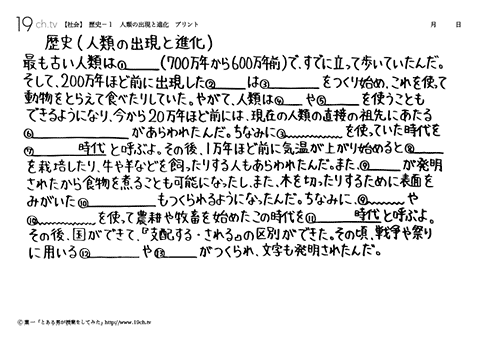 19ch.tv 【社会】 歴史-1 人類の出現と進化 プリント 月 日
歴史(人類の出現と進化)
最も古い人類は①____(700万年から600万年前)で、すでに立って歩いていたんだ。
そして、200万年ほど前に出現した②____は③____をつくり始め、これを使って
動物をとらえて食べたりしていた。やがて、人類は④____や⑤____を使うことも
できるようになり、今から20万年ほど前には、現在の人類の直接の祖先にあたる
⑥____があらわれたんだ。ちなみに③____を使っていた時代を
⑦____時代と呼ぶよ。その後、1万年ほど前に気温が上がり始めると⑧____
を栽培したり、牛や羊などを飼ったりする人もあらわれたんだ。また、⑨____が発明
されたから食物を煮ることも可能になったし、また、木を切ったりするために表面を
みがいた⑩____もつくられるようになったんだ。ちなみに、⑨____や
⑩____を使って農耕や牧畜を始めたこの時代を⑪____時代と呼ぶよ。
その後、国ができて、『支配する・される』の区別ができた。その頃、戦争や祭り
に用いる⑫____や⑬____がつくられ、文字も発明されたんだ。
© 葉一「とある男が授業をしてみた」http://www.19ch.tv